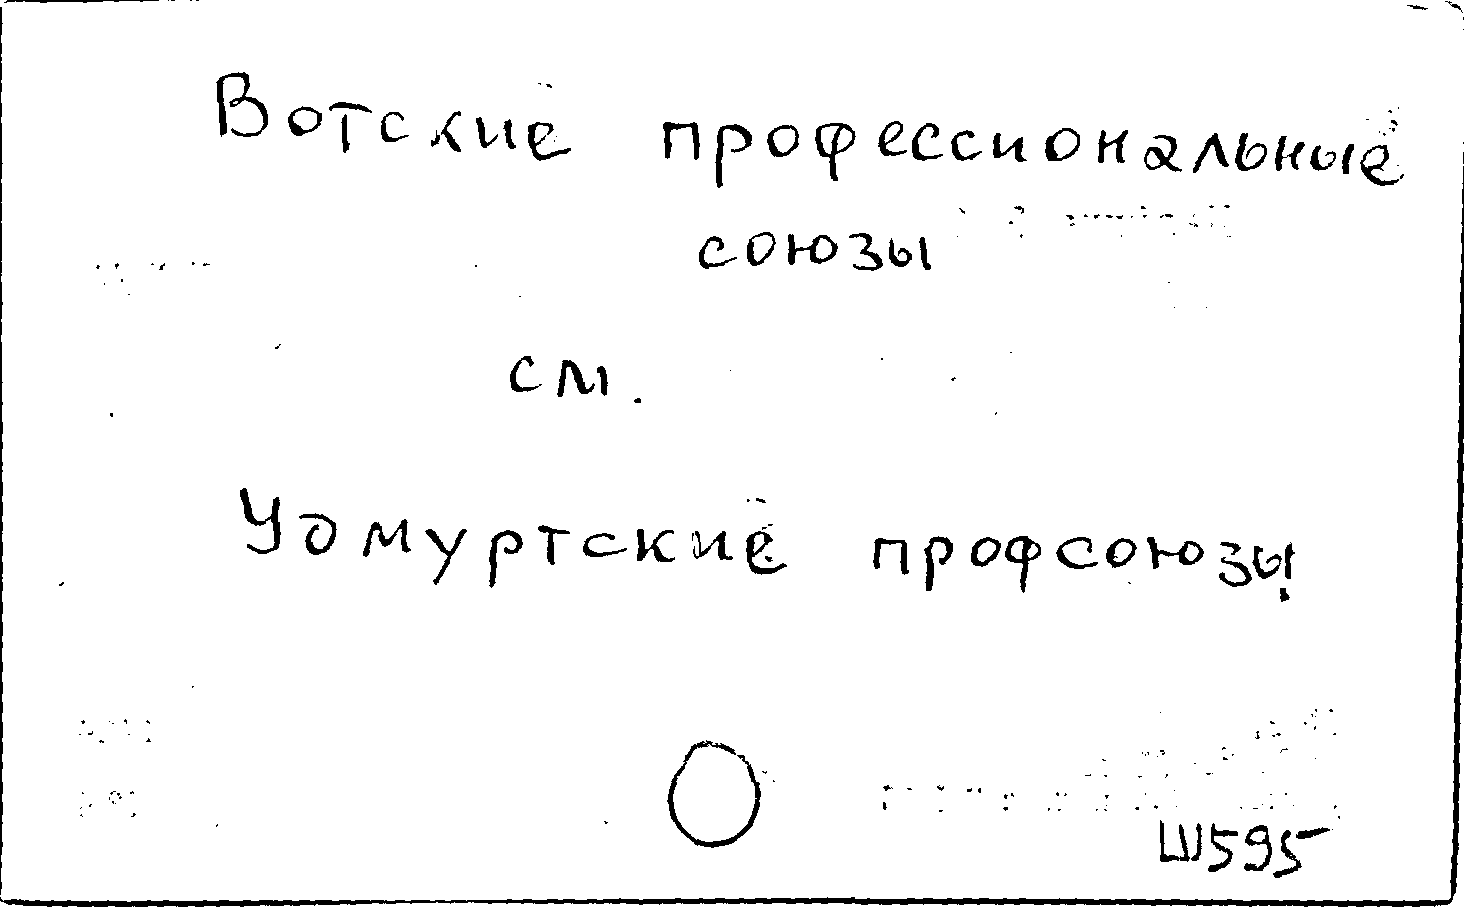 Вотские профессиональные
союзы
см.
Удмуртские профсоюзы.
Ш595